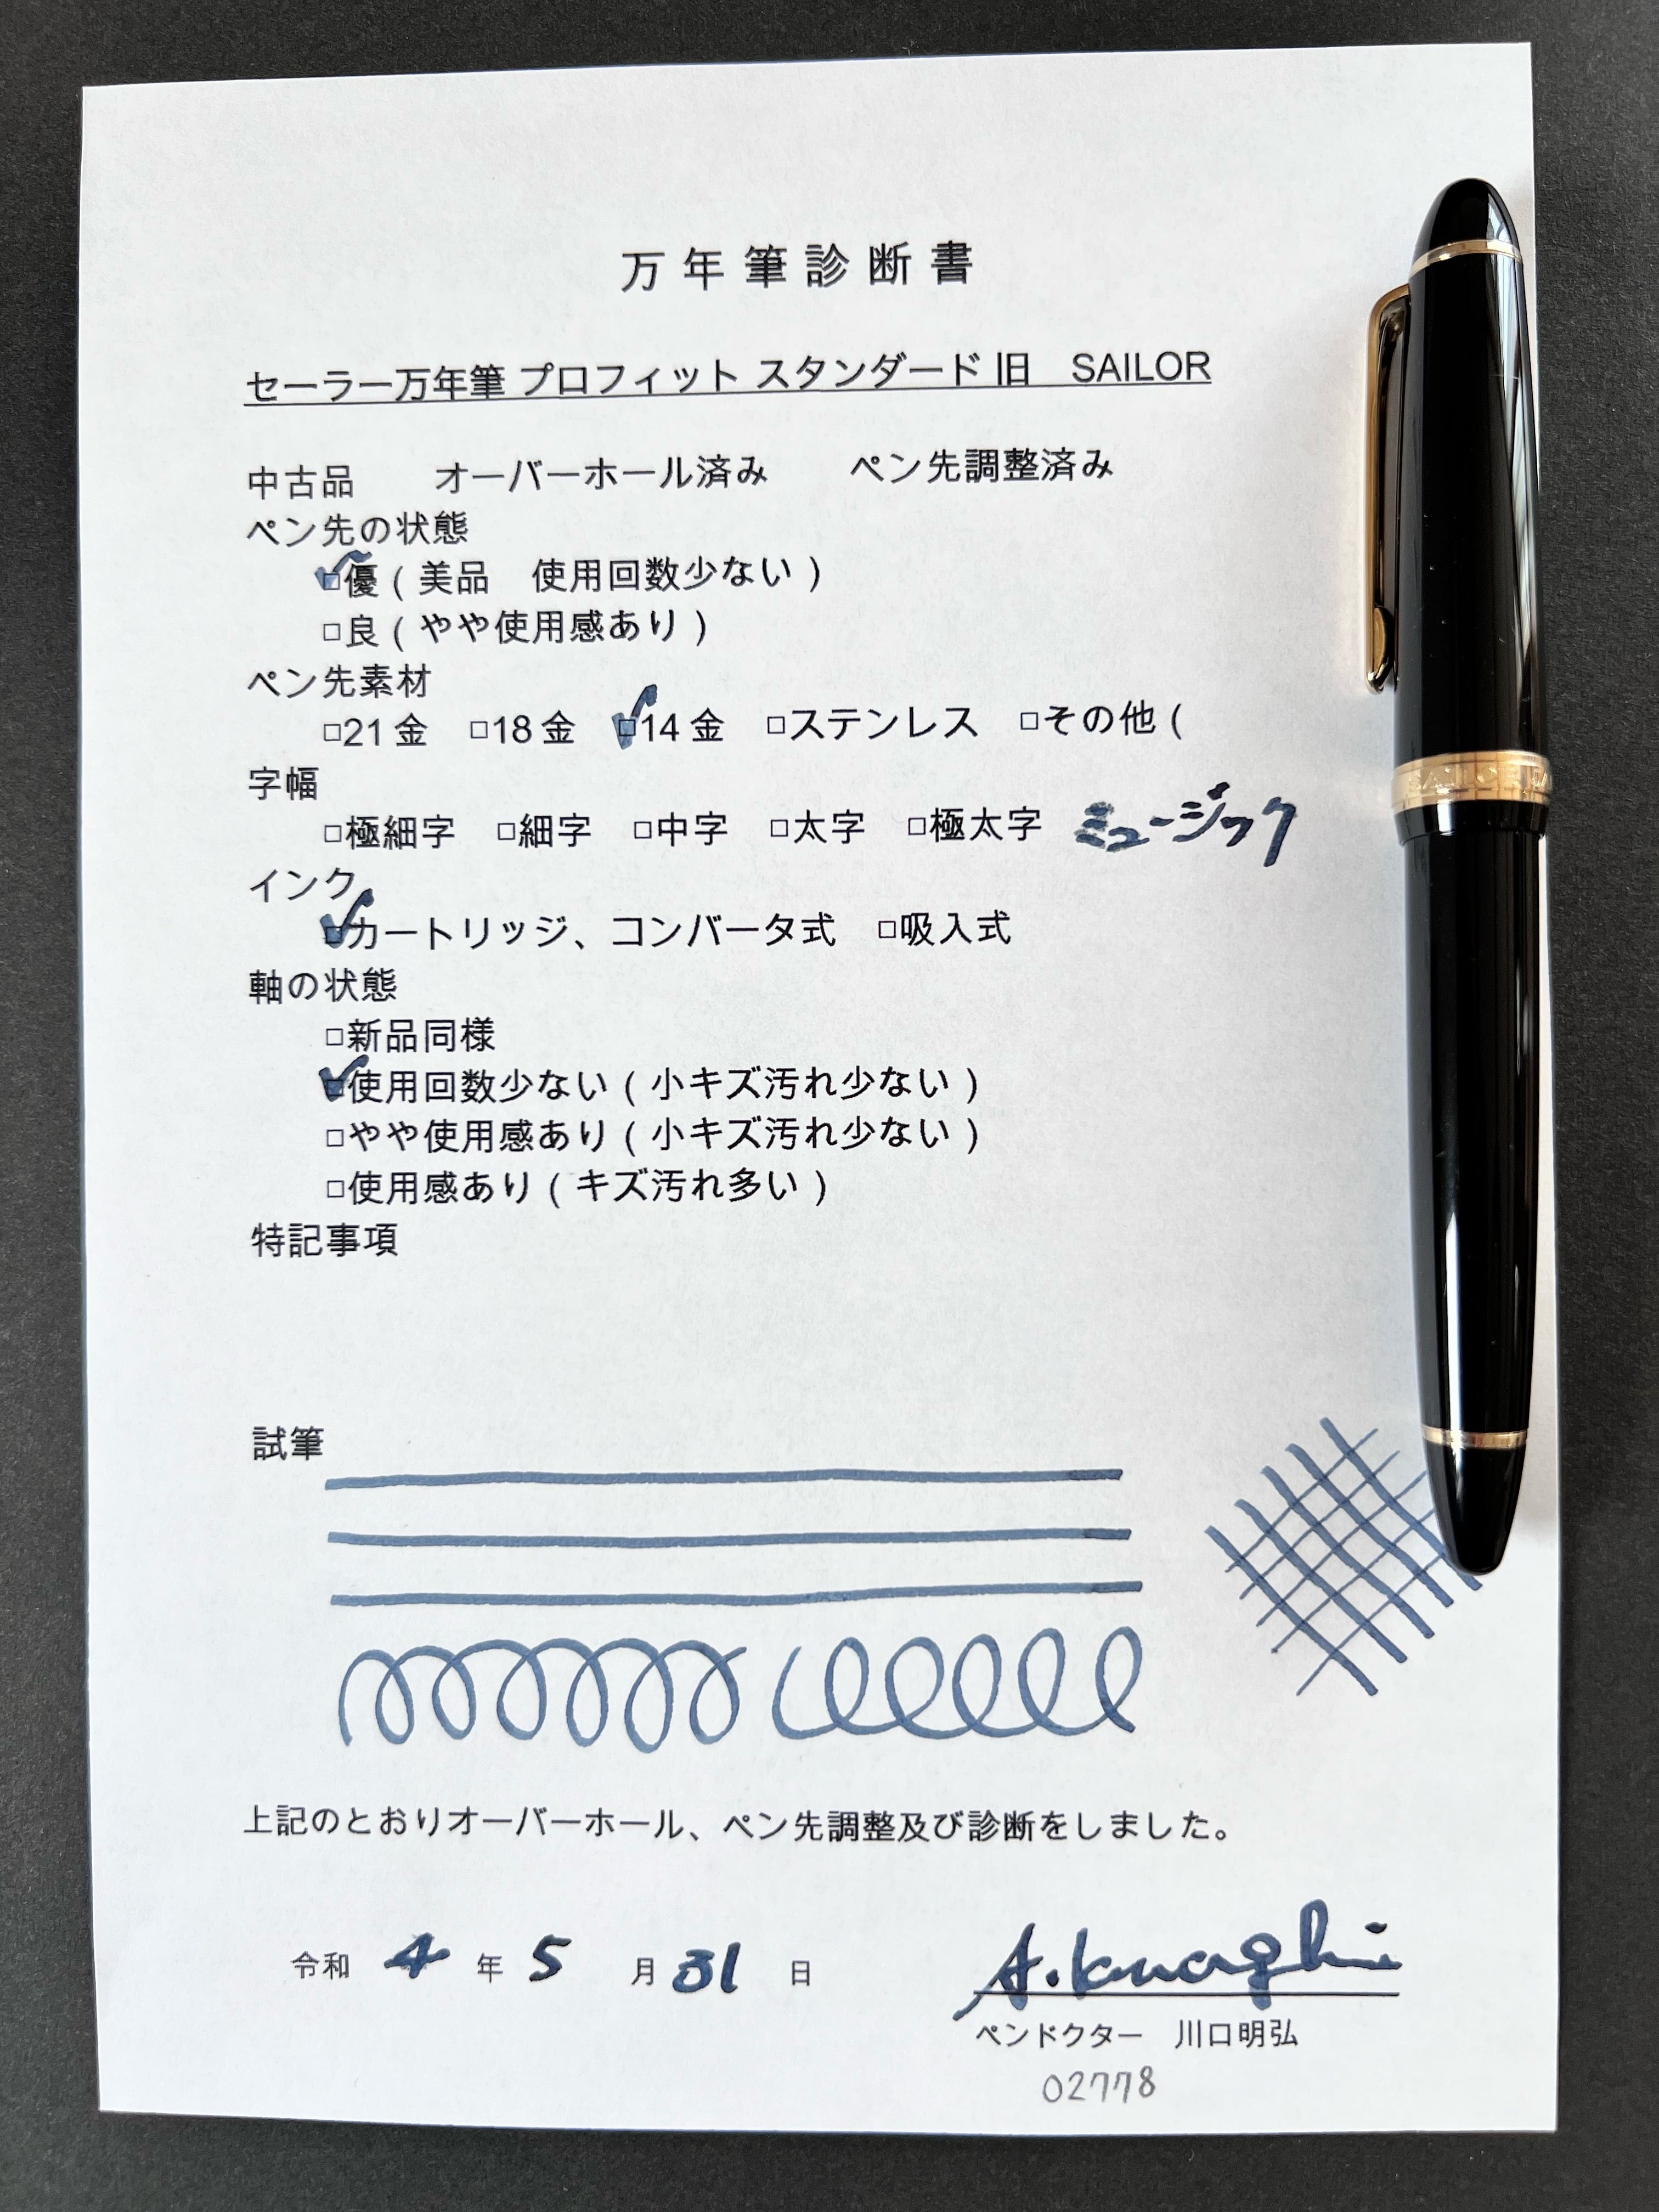 万年筆診断書
セーラー万年筆 プロフィット スタンダード 旧　SAILOR
中古品　オーバーホール済み　ペン先調整済み
ペン先の状態
☑優（美品　使用回数少ない）
□良（やや使用感あり）
ペン先素材
□21金　□18金　☑14金　□ステンレス　□その他（
字幅
□極細字　□細字　□中字　□太字　□極太字　ミュージック
インク
☑カートリッジ、コンバータ式　□吸入式
軸の状態
□新品同様
☑使用回数少ない（小キズ汚れ少ない）
□やや使用感あり（小キズ汚れ少ない）
□使用感あり（キズ汚れ多い）
特記事項
試筆
上記のとおりオーバーホール、ペン先調整及び診断をしました。
令和 4 年 5 月 31 日
A.Kawaguchi
ペンドクター　川口明弘
02778
SAILOR